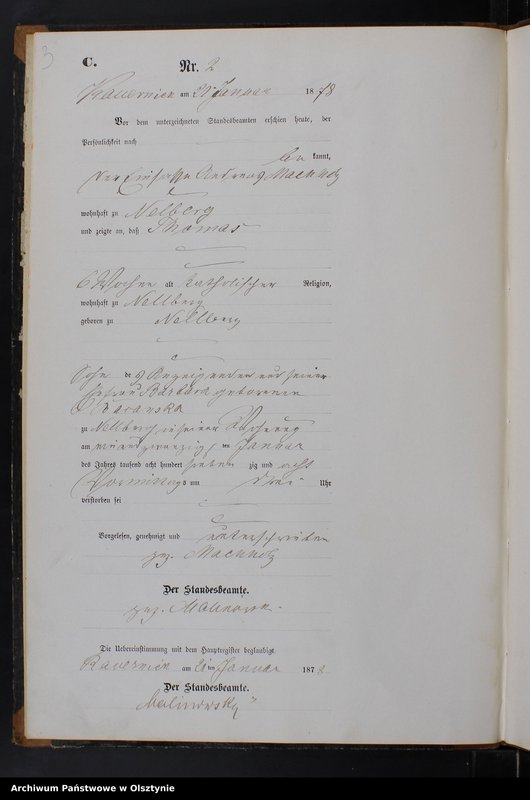 3
C.
Nr. 2
Kauernick am 21 Januar 1878
Vor dem unterzeichneten Standesbeamten erschien heute, der
Persönlichkeit nach
be kannt,
der Einsasse Andreas Machholz
wohnhaft zu Nelberg
und zeigte an, daß Thomas
6 Wochen alt katholischer Religion,
wohnhaft zu Nellberg
geboren zu Nellberg
Sohn des Anzeigenden und seiner
Ehefrau Barbara geborenen
Baranska
zu Nellberg in seiner Wohnung
am einundzwanzigsten Januar
des Jahres tausend acht hundert sieben zig und acht
Vormittags um drei Uhr
verstorben sei
Vorgelesen, genehmigt und unterschrieben
gez. Machholz
Der Standesbeamte.
gez. Malinowski
Die Uebereinstimmung mit dem Hauptregister beglaubigt.
Kauernick am 21ten Januar 1878
Der Standesbeamte.
Malinowski
Archiwum Państwowe w Olsztynie